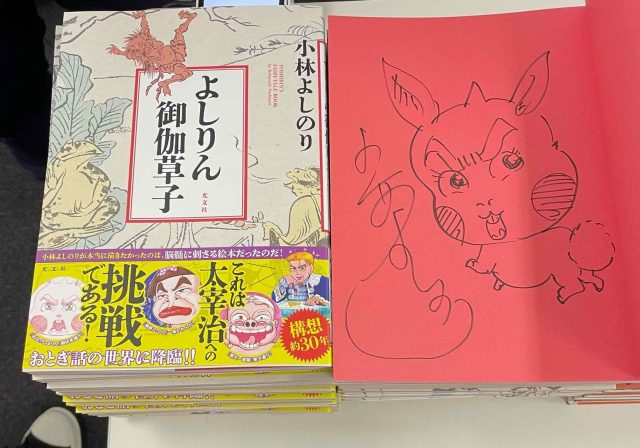 小林よしのり
YOSHIRIN'S
FAIRYTALE BOOK
by Kobayashi Yoshinori
よしりん
御伽草子
光文社
小林よしのりが本当に描きたかったのは、脳髄に刺さる絵本だったのだ!
光文社
これは
太宰治への
挑戦
である!
構想
約30年
おとぎ話の世界に降臨!!